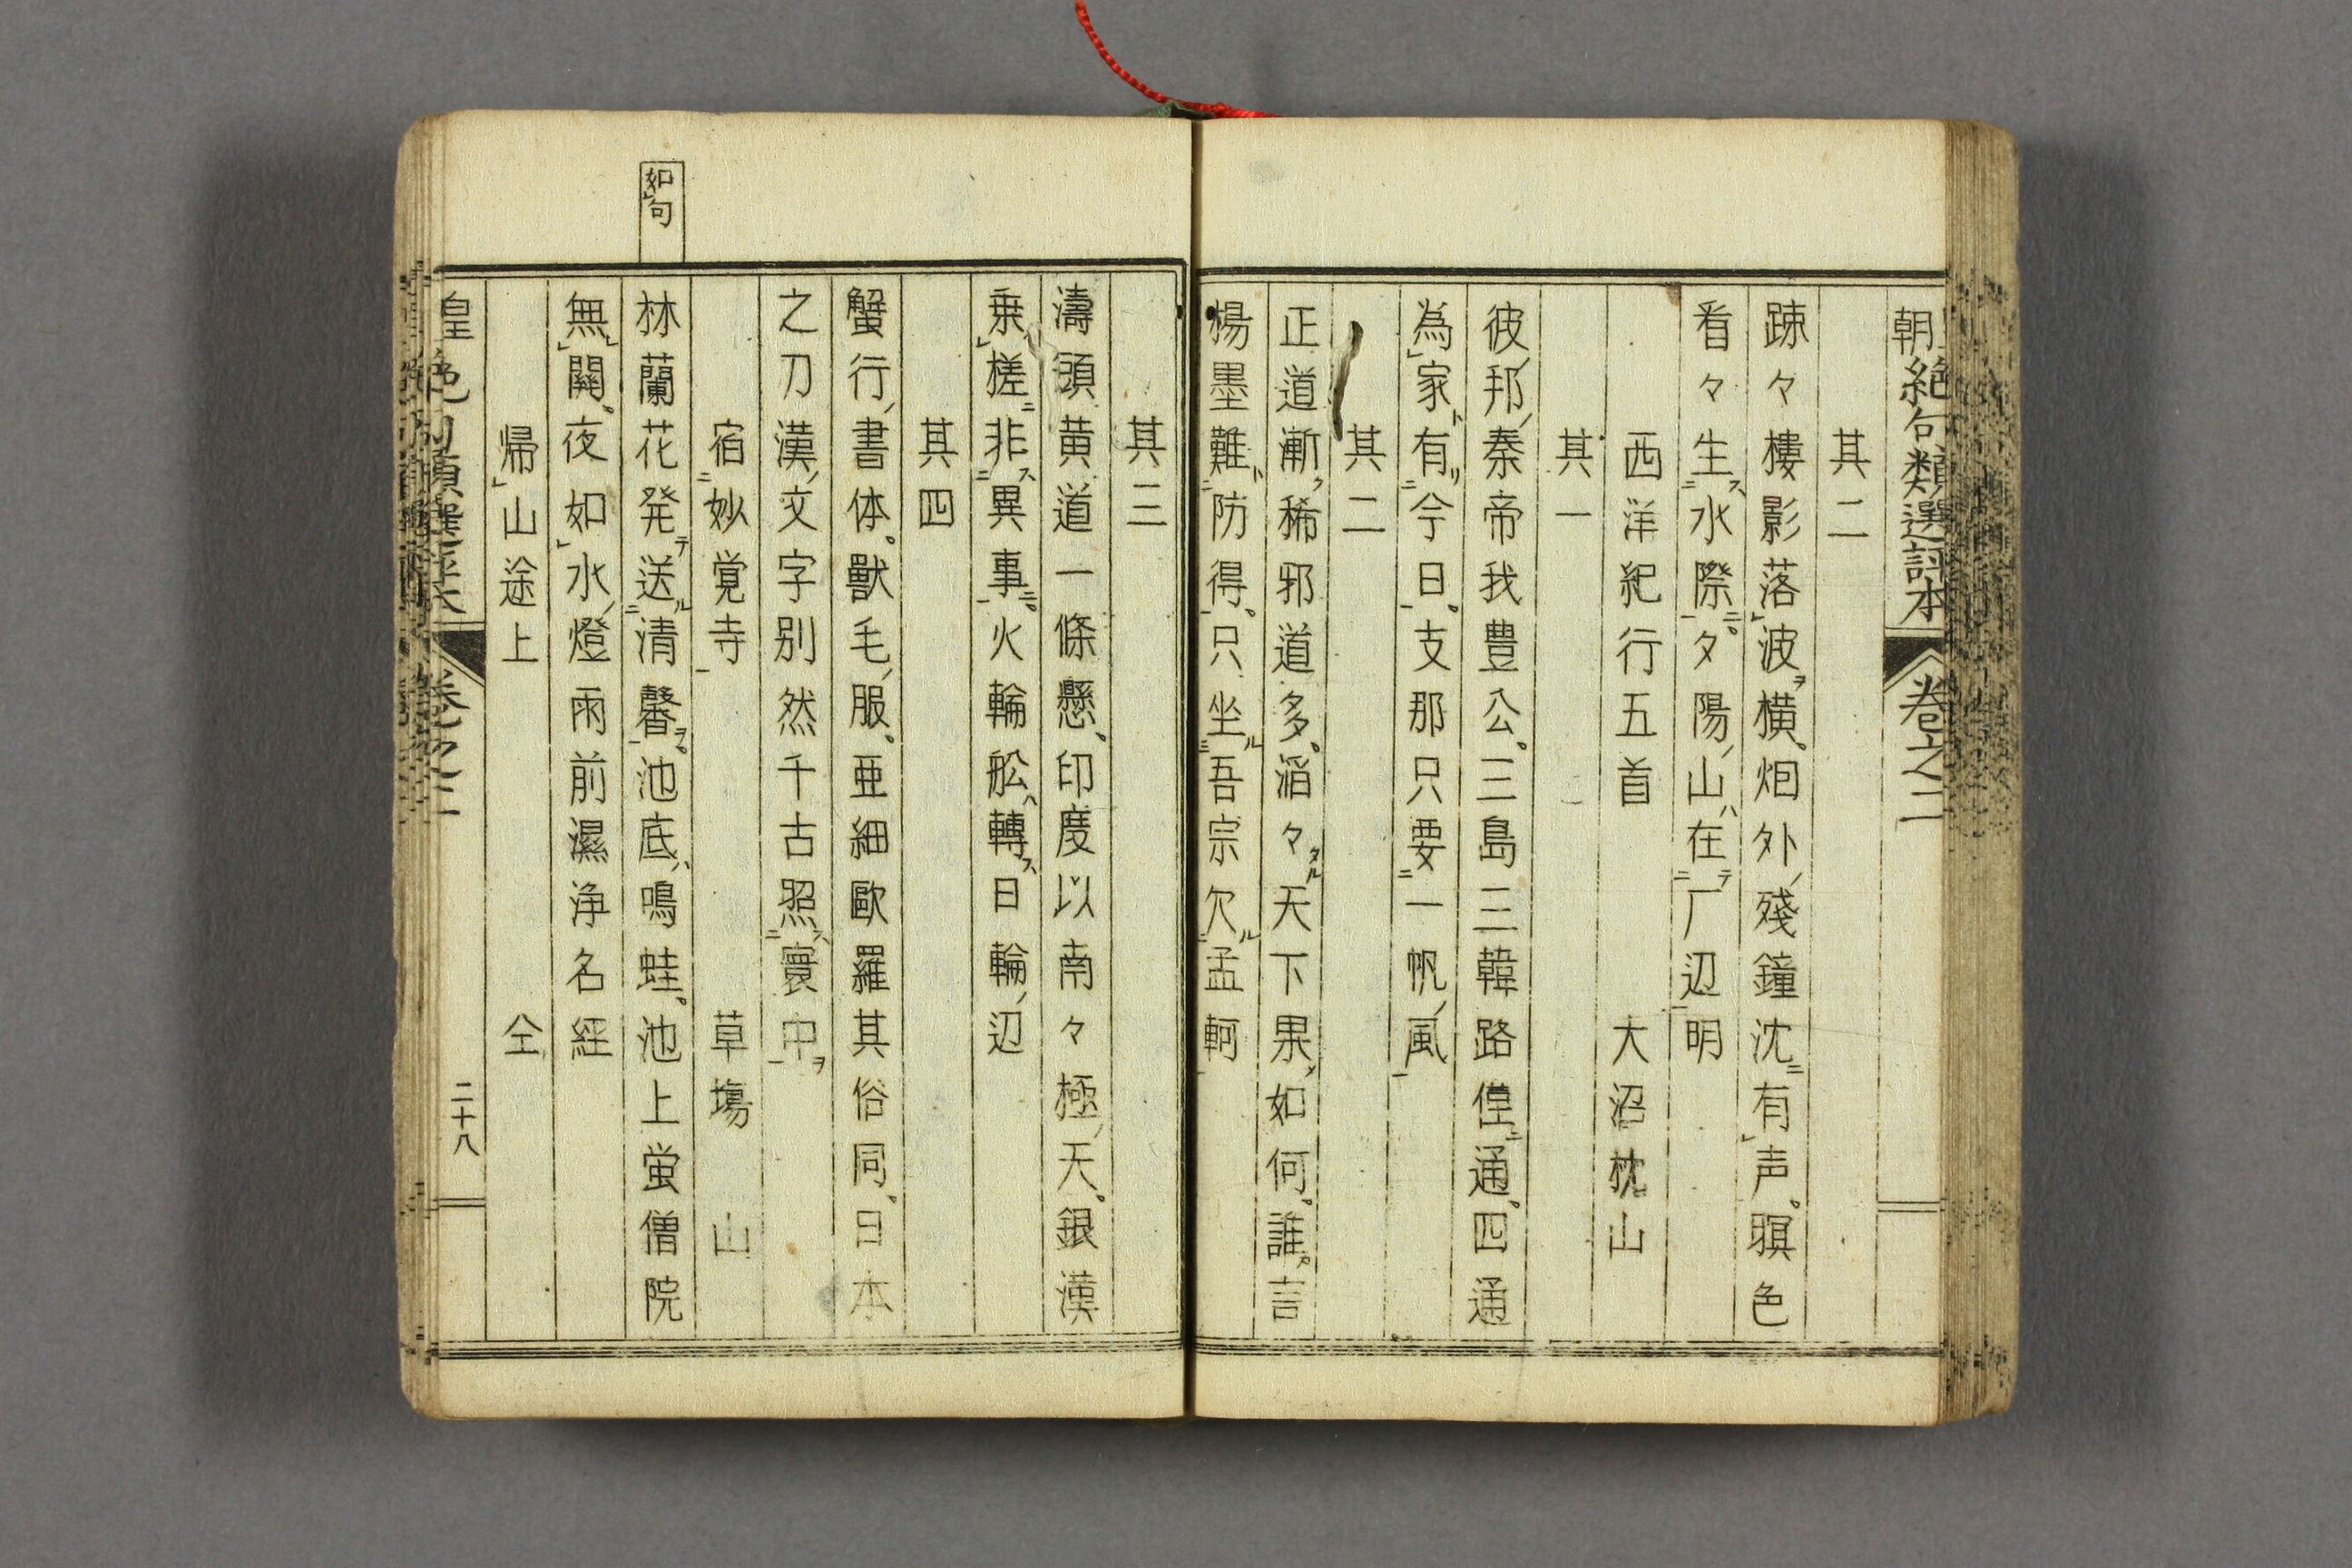 朝絶句類選評本 卷之二
其二
踈々樓影落波横烟外殘鐘沈有声暝色
看々生水際夕陽山在厂辺明
西洋紀行五首 大沼枕山
其一
彼邦秦帝我豊公三島三韓路徃通四通
為家有今日支那只要一帆風
其二
正道漸稀邪道多滔々天下果如何誰言
楊墨難防得只坐吾宗欠孟軻
其三
濤頭黄道一條懸印度以南々極天銀漢
乗槎非異事火輪舩轉日輪辺
其四
蟹行書体獸毛服亜細歐羅其俗同日本
之刀漢文字別然千古照寰中
宿妙覚寺 草塲山
如句
林蘭花発送清馨池底鳴蛙池上蛍僧院
無關夜如水燈雨前濕浄名経
帰山途上 仝
皇 絶句類選評本 卷之二 二十八